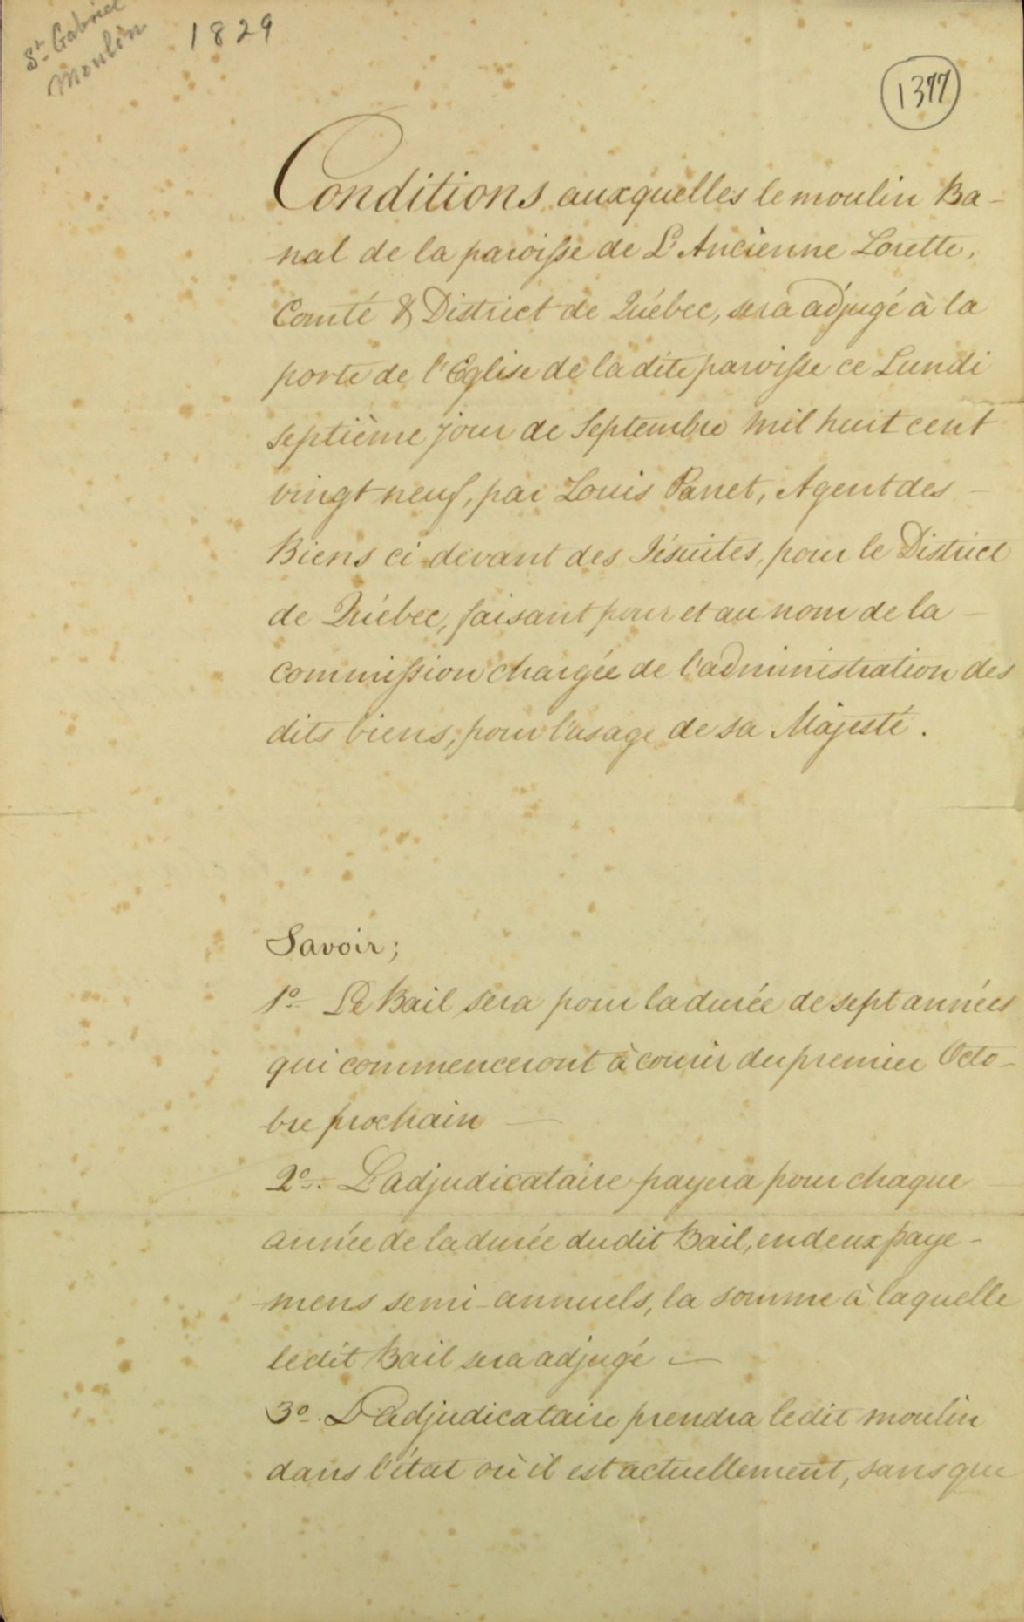 St Gabriel
Moulin
1829
1377
Conditions auxquelles le moulin Ba-
nal de la paroisse de L'Ancienne Lorette,
Comté & District de Québec, sera adjugé à la
porte de l'Eglise de la dite paroisse ce Lundi
septième jour de Septembre mil huit cent
vingt neuf, par Louis Panet, Agent des -
Biens ci-devant des Jésuites, pour le District
de Québec, faisant pour et au nom de la -
Commission chargée de l'administration des
dits biens, pour l'usage de sa Majesté.
Savoir;
1º- Le Bail sera pour la durée de sept années
qui commenceront à courir du premier Octo-
bre prochain —
2º-. L'adjudicataire payera pour chaque -
année de la durée dudit Bail, en deux paye-
mens semi-annuels, la somme à laquelle
ledit Bail sera adjugé —
3º-. L'adjudicataire prendra ledit moulin
dans l'état où il est actuellement, sans que